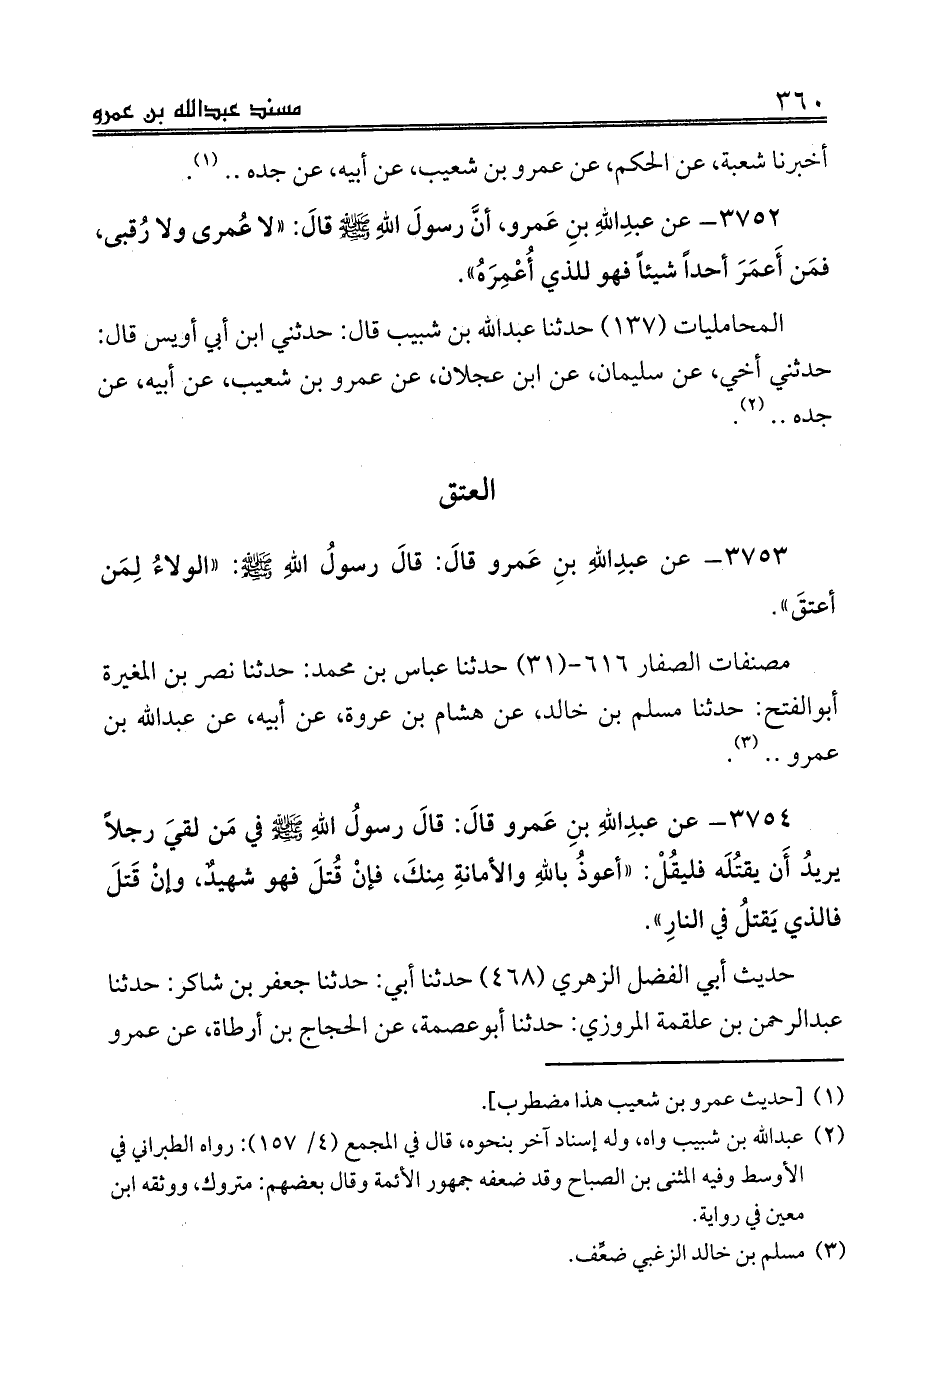 ٣٦٠ مسند عبدالله بن عمرو
أخبرنا شعبة، عن الحكم، عن عمرو بن شعيب، عن أبيه، عن جده .. (١).
٣٧٥٢- عن عبدِاللهِ بنِ عَمرو، أنَّ رسولَ اللهِ ﷺ قالَ: «لا عُمرى ولا رُقبى،
فمَن أَعمَرَ أحداً شيئاً فهو للذي أُعْمِرَهُ».
المحامليات (١٣٧) حدثنا عبدالله بن شبيب قال: حدثني ابن أبي أويس قال:
حدثني أخي، عن سليمان، عن ابن عجلان، عن عمرو بن شعيب، عن أبيه، عن
جده .. (٢).
العتق
٣٧٥٣- عن عبدِاللهِ بنِ عَمرو قالَ: قالَ رسولُ اللهِ ﷺ: «الولاءُ لِمَن
أعتقَ».
مصنفات الصفار ٦١٦-(٣١) حدثنا عباس بن محمد: حدثنا نصر بن المغيرة
أبوالفتح: حدثنا مسلم بن خالد، عن هشام بن عروة، عن أبيه، عن عبدالله بن
عمرو .. (٣).
٣٧٥٤- عن عبدِاللهِ بنِ عَمرو قالَ: قالَ رسولُ اللهِ ﷺ في مَن لقيَ رجلاً
يريدُ أَن يقتُلَه فليقُلْ: «أعوذُ باللهِ والأمانةِ مِنكَ، فإنْ قُتلَ فهو شهيدٌ، وإنْ قَتلَ
فالذي يَقتلُ في النارِ».
حديث أبي الفضل الزهري (٤٦٨) حدثنا أبي: حدثنا جعفر بن شاكر: حدثنا
عبدالرحمن بن علقمة المروزي: حدثنا أبوعصمة، عن الحجاج بن أرطاة، عن عمرو
(١) [حديث عمرو بن شعيب هذا مضطرب].
(٢) عبدالله بن شبيب واه، وله إسناد آخر بنحوه، قال في المجمع (٤/ ١٥٧): رواه الطبراني في
الأوسط وفيه المثنى بن الصباح وقد ضعفه جمهور الأئمة وقال بعضهم: متروك، ووثقه ابن
معين في رواية.
(٣) مسلم بن خالد الزغبي ضعَّف.